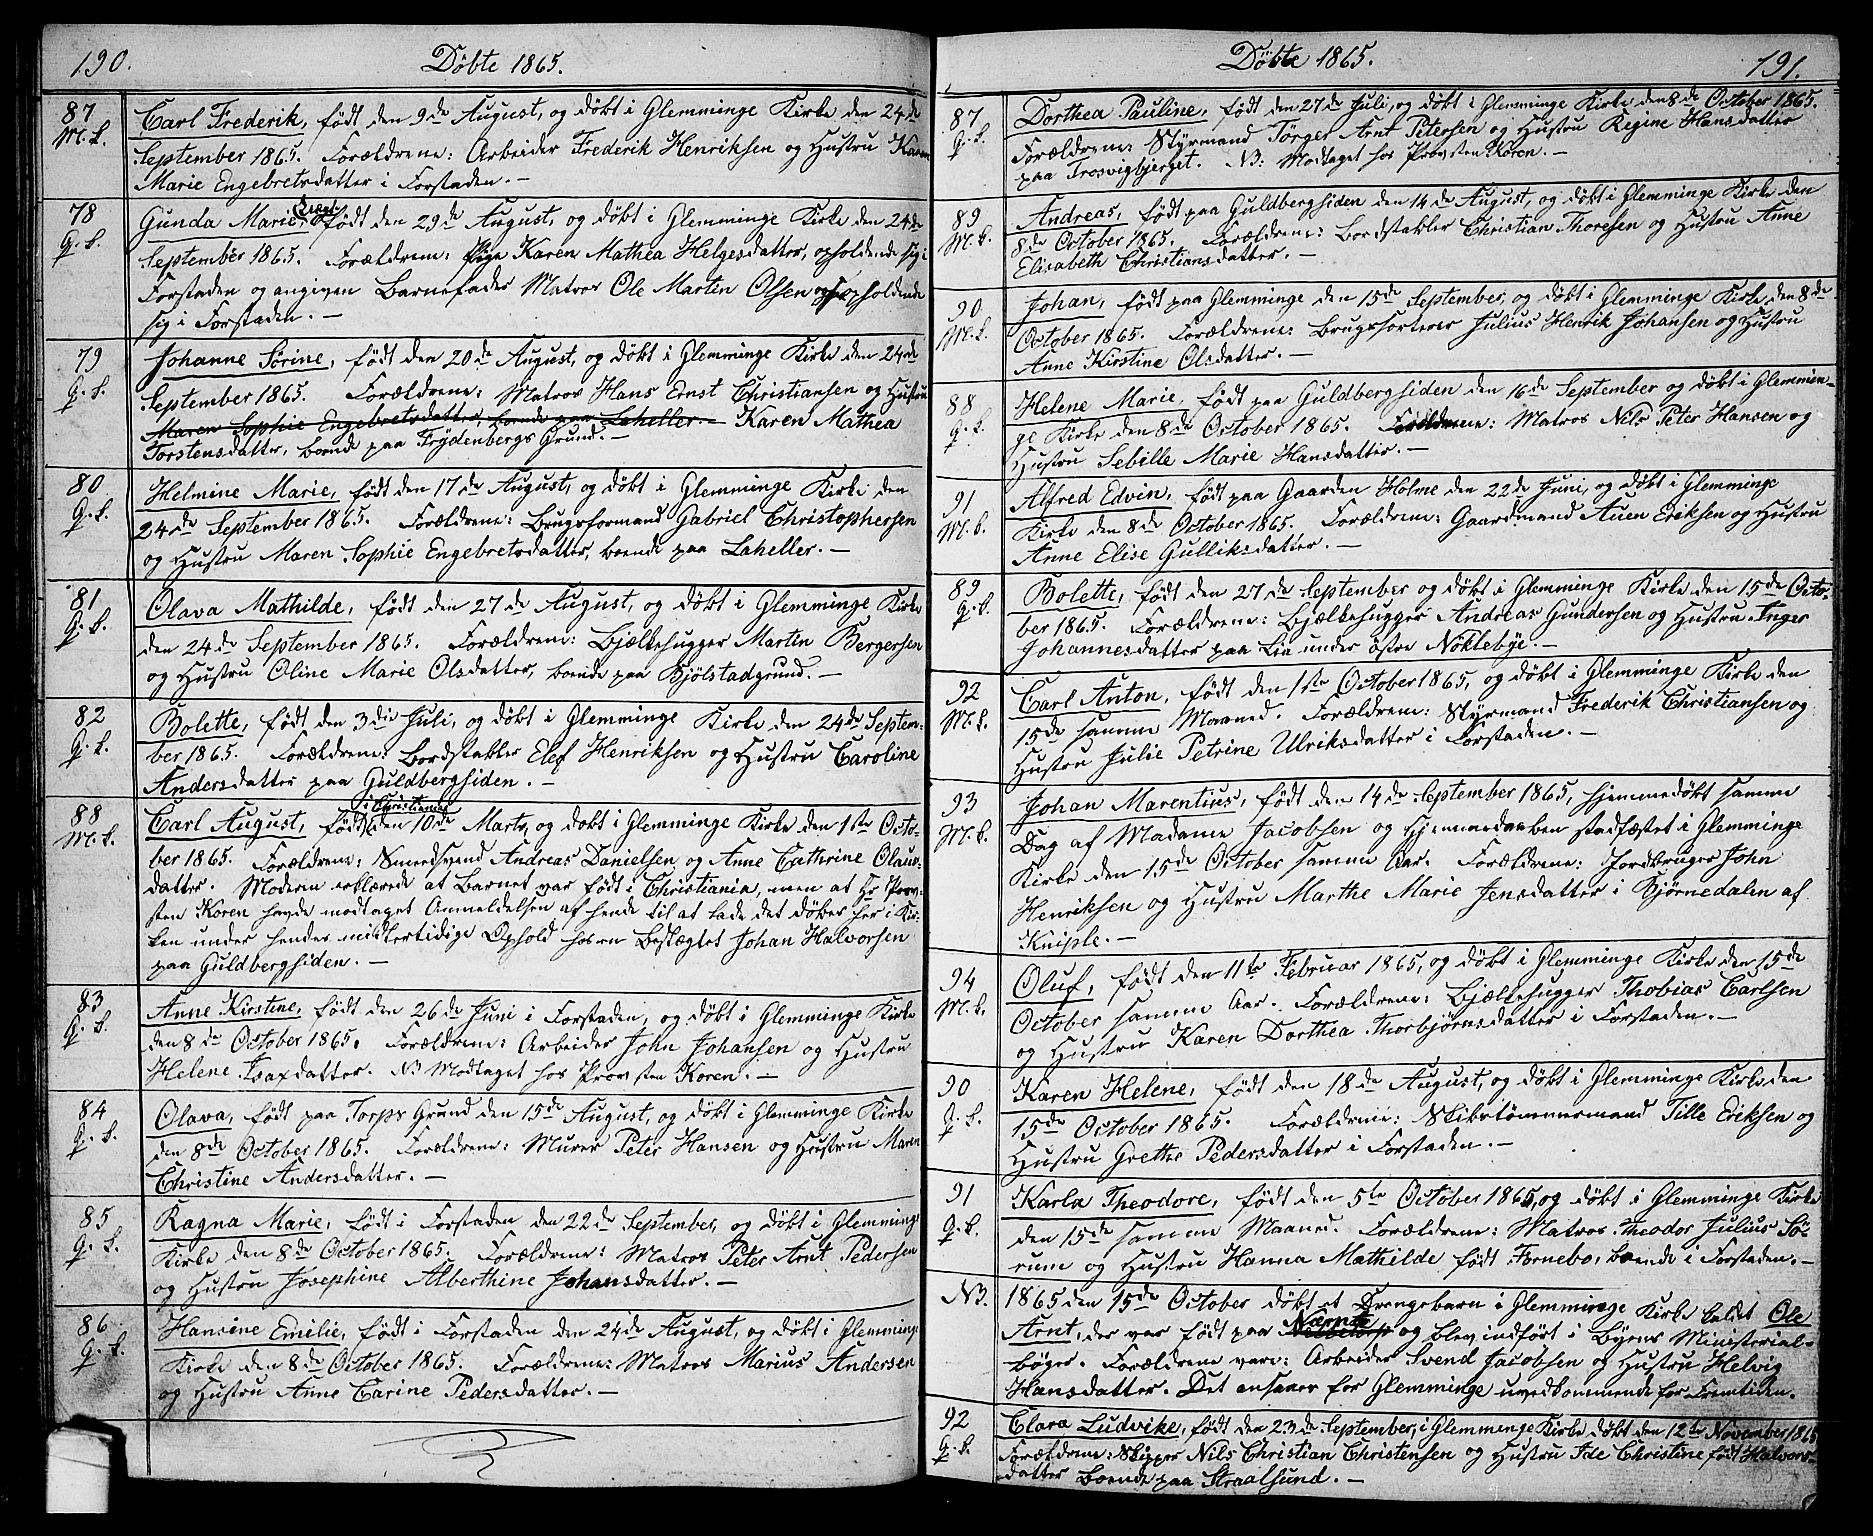 190.
Döbte 1865.
87
M. k.
Carl Frederik, født den 9de August, og døbt i Glemminge Kirke den 24de
September 1865. Forældrene: Arbeider Frederik Henriksen og Hustru Karen
Marie Engebretsdatter i Forstaden. —
78
Q. k.
Gunda Marie, født den 29de August, og døbt i Glemminge Kirke den 24de
September 1865. Forældrene: Pige Karen Mathea Helgesdatter, opholdende sig i
Forstaden og angiven Barnefader Matros Ole Martin Olsen opholdende
sig i Forstaden. —
79
Q. k.
Johanne Sørine, født den 20de August, og døbt i Glemminge Kirke den 24de
September 1865. Forældrene: Matros Hans Ernst Christiansen og Hustru
Maren Sophie Engebretsdatter, boende paa Laheller. — Karen Mathea
Torstensdatter, boende paa Frydenbergs Grund. —
80
Q. k.
Helmine Marie, født den 17de August, og døbt i Glemminge Kirke den
24de September 1865. Forældrene: Brugsformand Gabriel Christophersen
og Hustru Maren Sophie Engebretsdatter, boende paa Laheller. —
81
Q. k.
Olava Mathilde, født den 27de August, og døbt i Glemminge Kirke
den 24de September 1865. Forældrene: Bjælkehugger Martin Bergersen
og Hustru Oline Marie Olsdatter, boende paa Bjölstadgrund. —
82
Q. k.
Bolette, født den 3die Juli, og døbt i Glemminge Kirke den 24de Septem-
ber 1865. Forældrene: Bordstabler Elef Henriksen og Hustru Caroline
Andersdatter paa Guldbergsiden. —
88
M. k.
i Christiania
Carl August, født den 10de Marts, og døbt i Glemminge Kirke den 1ste Octo-
ber 1865. Forældrene: Smedsvend Andreas Danielsen og Anne Cathrine Olaus-
datter. Moderen erklærede at Barnet var født i Christiania, men at Hr Prov-
sten Koren havde modtaget Anmeldelsen af hende til at lade det døbes her i Kir-
ken under hendes midlertidige Ophold hos en Beslægtet Johan Halvorsen
paa Guldbergsiden. —
83
Q. k.
Anne Kirstine, født den 26de Juni i Forstaden, og døbt i Glemminge Kirke
den 8de October 1865. Forældrene: Arbeider John Johansen og Hustru
Helene Isaxdatter. NB Modtaget hos Provsten Koren. —
84
Q. k.
Olava, født paa Torps Grund den 15de August, og døbt i Glemminge Kirke
den 8de October 1865. Forældrene: Murer Peter Hansen og Hustru Maren
Christine Andersdatter. —
85
Q. k.
Ragna Marie, født i Forstaden den 22de September, og døbt i Glemminge
Kirke den 8de October 1865. Forældrene: Matros Peter Arnt Pedersen
og Hustru Josephine Alberthine Johansdatter. —
86
Q. k.
Hansine Emilie, født i Forstaden den 24de August, og døbt i Glemminge
Kirke den 8de October 1865. Forældrene: Matros Marius Andersen
og Hustru Anne Carine Pedersdatter. —
Döbte 1865.
191.
87
Q. k.
Dorthea Pauline, født den 27de Juli, og døbt i Glemminge Kirke den 8de October 1865.
Forældrene: Styrmand Torger Arnt Petersen og Hustru Regine Hansdatter
paa Trosvigbjerget. NB: Modtaget hos Provsten Koren. —
89
M. k.
Andreas, født paa Guldbergsiden den 14de August, og døbt i Glemminge Kirke den
8de October 1865. Forældrene: Bordstabler Christian Thoresen og Hustru Anne
Elisabeth Christiansdatter. —
90
M. k.
Johan, født paa Glemminge den 15de September, og døbt i Glemminge Kirke den 8de
October 1865. Forældrene: Brugssorterer Julius Henrik Johansen og Hustru
Anne Kirstine Olsdatter. —
88
Q. k.
Helene Marie, født paa Guldbergsiden den 16de September og døbt i Glemmin-
ge Kirke den 8de October 1865. Forældrene: Matros Nils Peter Hansen og
Hustru Sebille Marie Hansdatter. —
91
M. k.
Alfred Edvin, født paa Gaarden Holme den 22de Juni, og døbt i Glemminge
Kirke den 8de October 1865. Forældrene: Gaardmand Auen Eriksen og Hustru
Anne Elise Gulliksdatter. —
89
Q. k.
Bolette, født den 27de September og døbt i Glemminge Kirke den 15de Octo-
ber 1865. Forældrene: Bjælkehugger Andreas Gundersen og Hustru Inger
Johannesdatter paa Lia under østre Nöklebye. —
92
M. k.
Carl Anton, født den 1ste October 1865, og døbt i Glemminge Kirke den
15de samme Maaned. Forældrene: Styrmand Frederik Christiansen og
Hustru Julie Petrine Ulriksdatter i Forstaden. —
93
M. k.
Johan Marentius, født den 14de September 1865, hjemmedøbt samme
Dag af Madame Jacobsen og Hjemmedaaben stadfæstet i Glemminge
Kirke den 15de October samme Aar. Forældrene: Jordbruger John
Henriksen og Hustru Marthe Marie Jensdatter i Bjørnedalen af
Kniple. —
94
M. k.
Oluf, født den 11te Februar 1865, og døbt i Glemminge Kirke den 15de
October samme Aar. Forældrene: Bjælkehugger Thobias Carlsen
og Hustru Karen Dorthea Thorbjørnsdatter i Forstaden. —
90
Q. k.
Karen Helene, født den 18de August, og døbt i Glemminge Kirke den
15de October 1865. Forældrene: Skibstømmermand Tille Eriksen og
Hustru Grethe Pedersdatter i Forstaden. —
91
Q. k.
Karla Theodore, født den 5te October 1865, og døbt i Glemminge Kirke
den 15de samme Maaned. Forældrene: Matros Theodor Julius Sö-
rum og Hustru Hanna Mathilde født Fornebo, boende i Forstaden. —
NB.
1865 den 15de October døbt et Drengebarn i Glemminge Kirke kaldet Ole
Arnt, der var født paa Nærnte og blev indført i Byens Ministerial-
bøger. Forældrene vare: Arbeider Svend Jacobsen og Hustru Helvig
Hansdatter. Det ansees for Glemminge uvedkommende for Fremtiden.
92
Q. k.
Clara Ludvike, født den 23de September, i Glemminge Kirke døbt den 12te November 1865
Forældrene: Skipper Nils Christian Christensen og Hustru Ide Christine født Halvors-
datter boende paa Straalsund. —